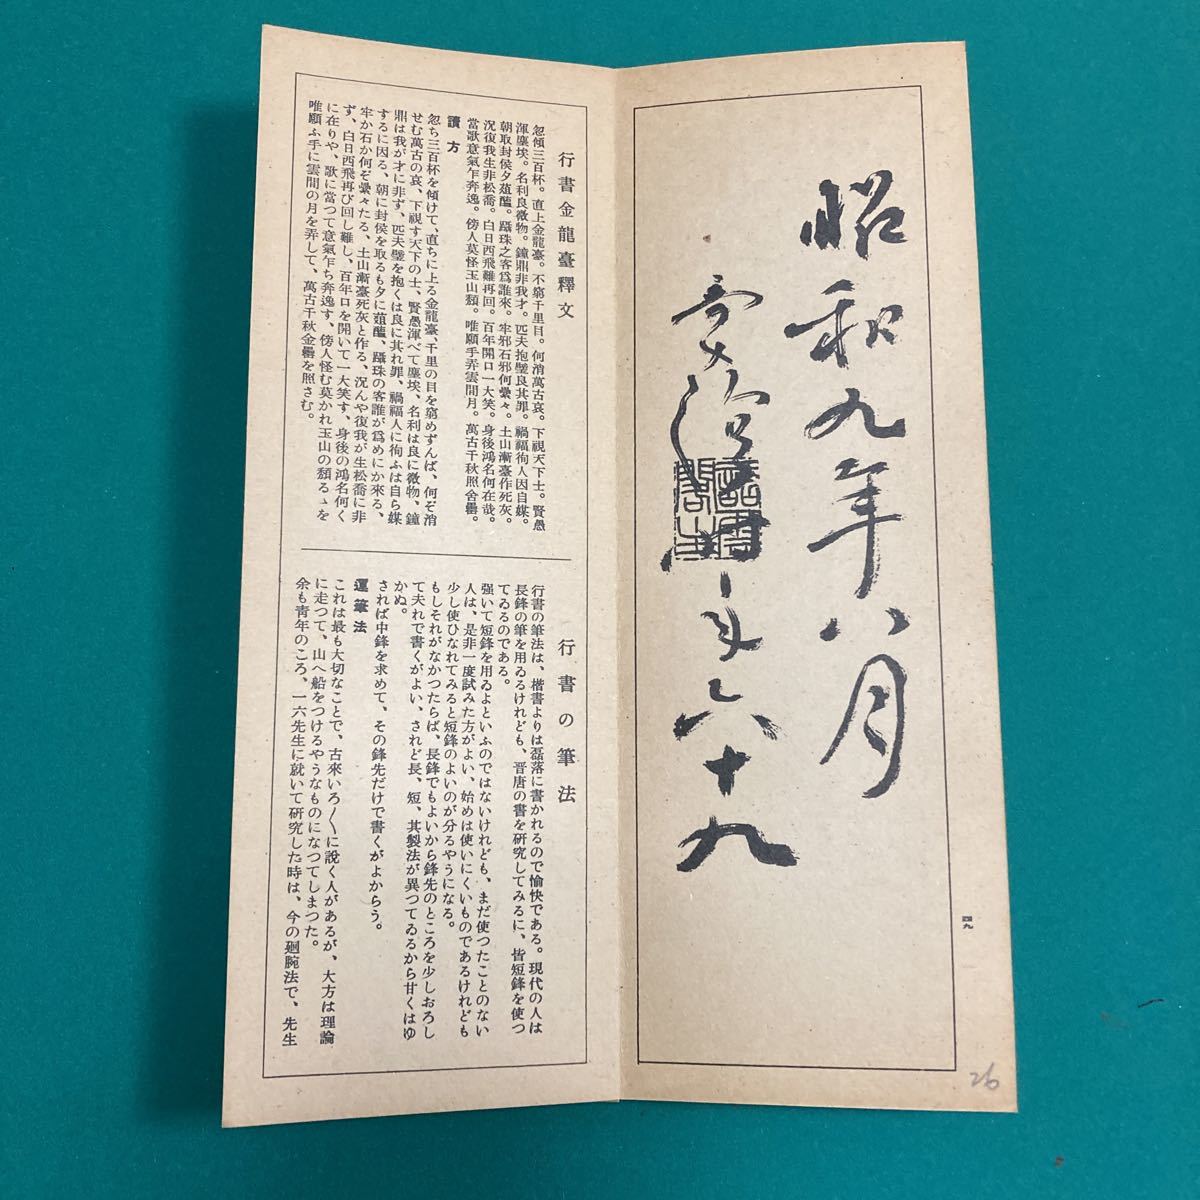 昭和九年八月
時年六十九
四九
26
行書金龍臺釋文
忽傾三百杯。直上金龍臺。不窮千里目。何消萬古哀。下視天下士。賢愚
渾塵埃。名利良微物。鐘鼎非我才。匹夫抱璧良其罪。禍福徇人因自媒。
朝取封侯夕葅醢。躡珠之客爲誰來。牢邪石邪何纍々。土山漸臺作死灰。
況復我生非松喬。白日西飛難再回。百年開口一大笑。身後鴻名何在哉。
當歌意氣乍奔逸。傍人莫怪玉山頽。唯願手弄雲間月。萬古千秋照金罍。
讀方
忽ち三百杯を傾けて、直ちに上る金龍臺、千里の目を窮めずんば、何ぞ消
せむ萬古の哀、下視す天下の士、賢愚渾べて塵埃、名利は良に微物、鐘
鼎は我が才に非ず、匹夫璧を抱くは良に其れ罪、禍福人に徇ふは自ら媒
するに因る、朝に封侯を取るも夕に葅醢、躡珠の客誰が爲めにか來る、
牢か石か何ぞ纍々たる、土山漸臺死灰と作る、況んや復我が生松喬に非
ず、白日西飛再び回し難し、百年口を開いて一大笑す、身後の鴻名何く
に在りや、歌に當つて意氣乍ち奔逸す、傍人怪む莫かれ玉山の頽るゝを
唯願ふ手に雲間の月を弄して、萬古千秋金罍を照さむ。
行書の筆法
行書の筆法は、楷書よりは磊落に書かれるので愉快である。現代の人は
長鋒の筆を用ゐるけれども、晋唐の書を研究してみるに、皆短鋒を使つ
てゐるのである。
強いて短鋒を用ゐよといふのではないけれども、まだ使つたことのない
人は、是非一度試みた方がよい、始めは使いにくいものであるけれども
少し使ひなれてみると短鋒のよいのが分るやうになる。
もしそれがなかつたらば、長鋒でもよいから鋒先のところを少しおろし
て夫れで書くがよい、されど長、短、其製法が異つてゐるから甘くはゆ
かぬ。
されば中鋒を求めて、その鋒先だけで書くがよからう。
運筆法
これは最も大切なことで、古來いろ〳〵に說く人があるが、大方は理論
に走つて、山へ船をつけるやうなものになつてしまつた。
余も靑年のころ、一六先生に就いて研究した時は、今の廻腕法で、先生